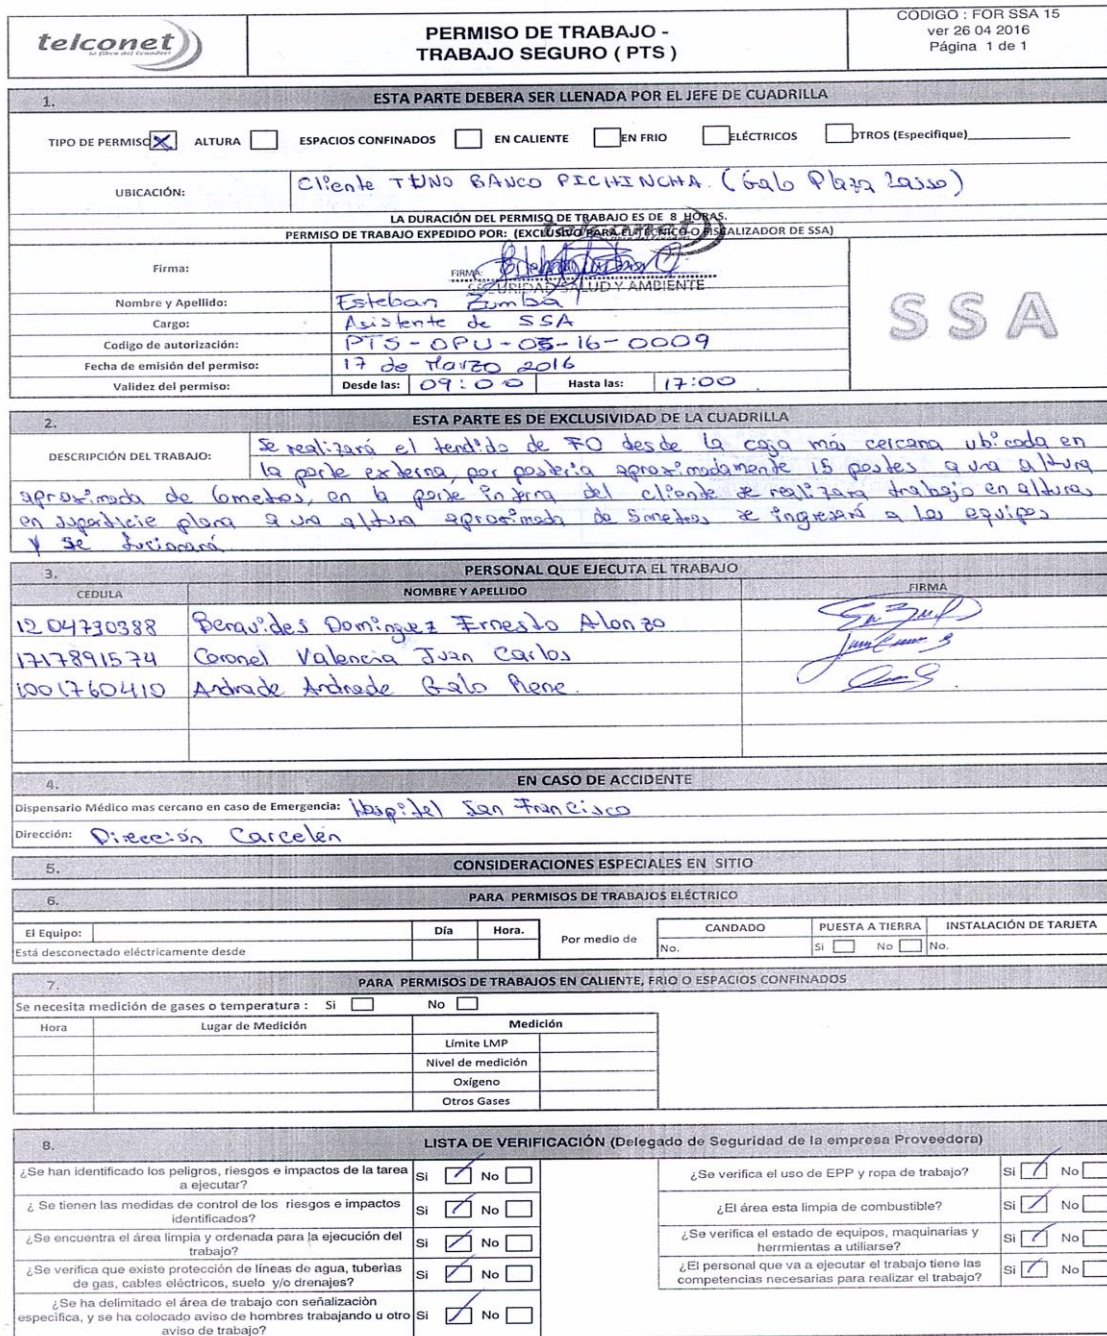 telconet
la fibra del Ecuador
PERMISO DE TRABAJO -
TRABAJO SEGURO ( PTS )
CODIGO : FOR SSA 15
ver 26 04 2016
Página 1 de 1
1. ESTA PARTE DEBERA SER LLENADA POR EL JEFE DE CUADRILLA
TIPO DE PERMISO X ALTURA ESPACIOS CONFINADOS EN CALIENTE EN FRIO ELÉCTRICOS OTROS (Especifique)
UBICACIÓN: Cliente TUNO BANCO PICHINCHA. (Galo Plaza Lasso)
LA DURACIÓN DEL PERMISO DE TRABAJO ES DE 8 HORAS.
PERMISO DE TRABAJO EXPEDIDO POR: (EXCLUSIVO PARA EL TÉCNICO O FISCALIZADOR DE SSA)
telconet
Firma: FIRMA:
SEGURIDAD SALUD Y AMBIENTE
Nombre y Apellido: Esteban Zumba
Cargo: Asistente de SSA
Codigo de autorización: PTS-OPU-03-16-0009
Fecha de emisión del permiso: 17 de Marzo 2016
Validez del permiso: Desde las: 09:00 Hasta las: 17:00
SSA
2. ESTA PARTE ES DE EXCLUSIVIDAD DE LA CUADRILLA
DESCRIPCIÓN DEL TRABAJO: Se realizará el tendido de FO desde la caja más cercana ubicada en
la parte externa, por posteria aproximadamente 15 postes a una altura
aproximada de 6 metros, en la parte interna del cliente se realizara trabajo en alturas
en superficie plana a una altura aproximada de 5 metros se ingresará a los equipos
y se fusionará
3. PERSONAL QUE EJECUTA EL TRABAJO
CEDULA NOMBRE Y APELLIDO FIRMA
1204730388 Benavides Dominguez Ernesto Alonzo
1717891574 Coronel Valencia Juan Carlos
1001760410 Andrade Andrade Galo Rene.
4. EN CASO DE ACCIDENTE
Dispensario Médico mas cercano en caso de Emergencia: Hospital San Francisco
Dirección: Dirección Carcelén
5. CONSIDERACIONES ESPECIALES EN SITIO
6. PARA PERMISOS DE TRABAJOS ELÉCTRICO
El Equipo: Día Hora. Por medio de CANDADO PUESTA A TIERRA INSTALACIÓN DE TARJETA
Está desconectado eléctricamente desde No. Si No No.
7. PARA PERMISOS DE TRABAJOS EN CALIENTE, FRIO O ESPACIOS CONFINADOS
Se necesita medición de gases o temperatura : Si No
Hora Lugar de Medición Medición
Límite LMP
Nivel de medición
Oxígeno
Otros Gases
8. LISTA DE VERIFICACIÓN (Delegado de Seguridad de la empresa Proveedora)
¿Se han identificado los peligros, riesgos e impactos de la tarea
a ejecutar? Si No
¿ Se tienen las medidas de control de los riesgos e impactos
identificados? Si No
¿Se encuentra el área limpia y ordenada para la ejecución del
trabajo? Si No
¿Se verifica que existe protección de líneas de agua, tuberias
de gas, cables eléctricos, suelo y/o drenajes? Si No
¿Se ha delimitado el área de trabajo con señalización
especifica, y se ha colocado aviso de hombres trabajando u otro
aviso de trabajo? Si No
¿Se verifica el uso de EPP y ropa de trabajo? Si No
¿El área esta limpia de combustible? Si No
¿Se verifica el estado de equipos, maquinarias y
herrmientas a utiliarse? Si No
¿El personal que va a ejecutar el trabajo tiene las
competencias necesarias para realizar el trabajo? Si No